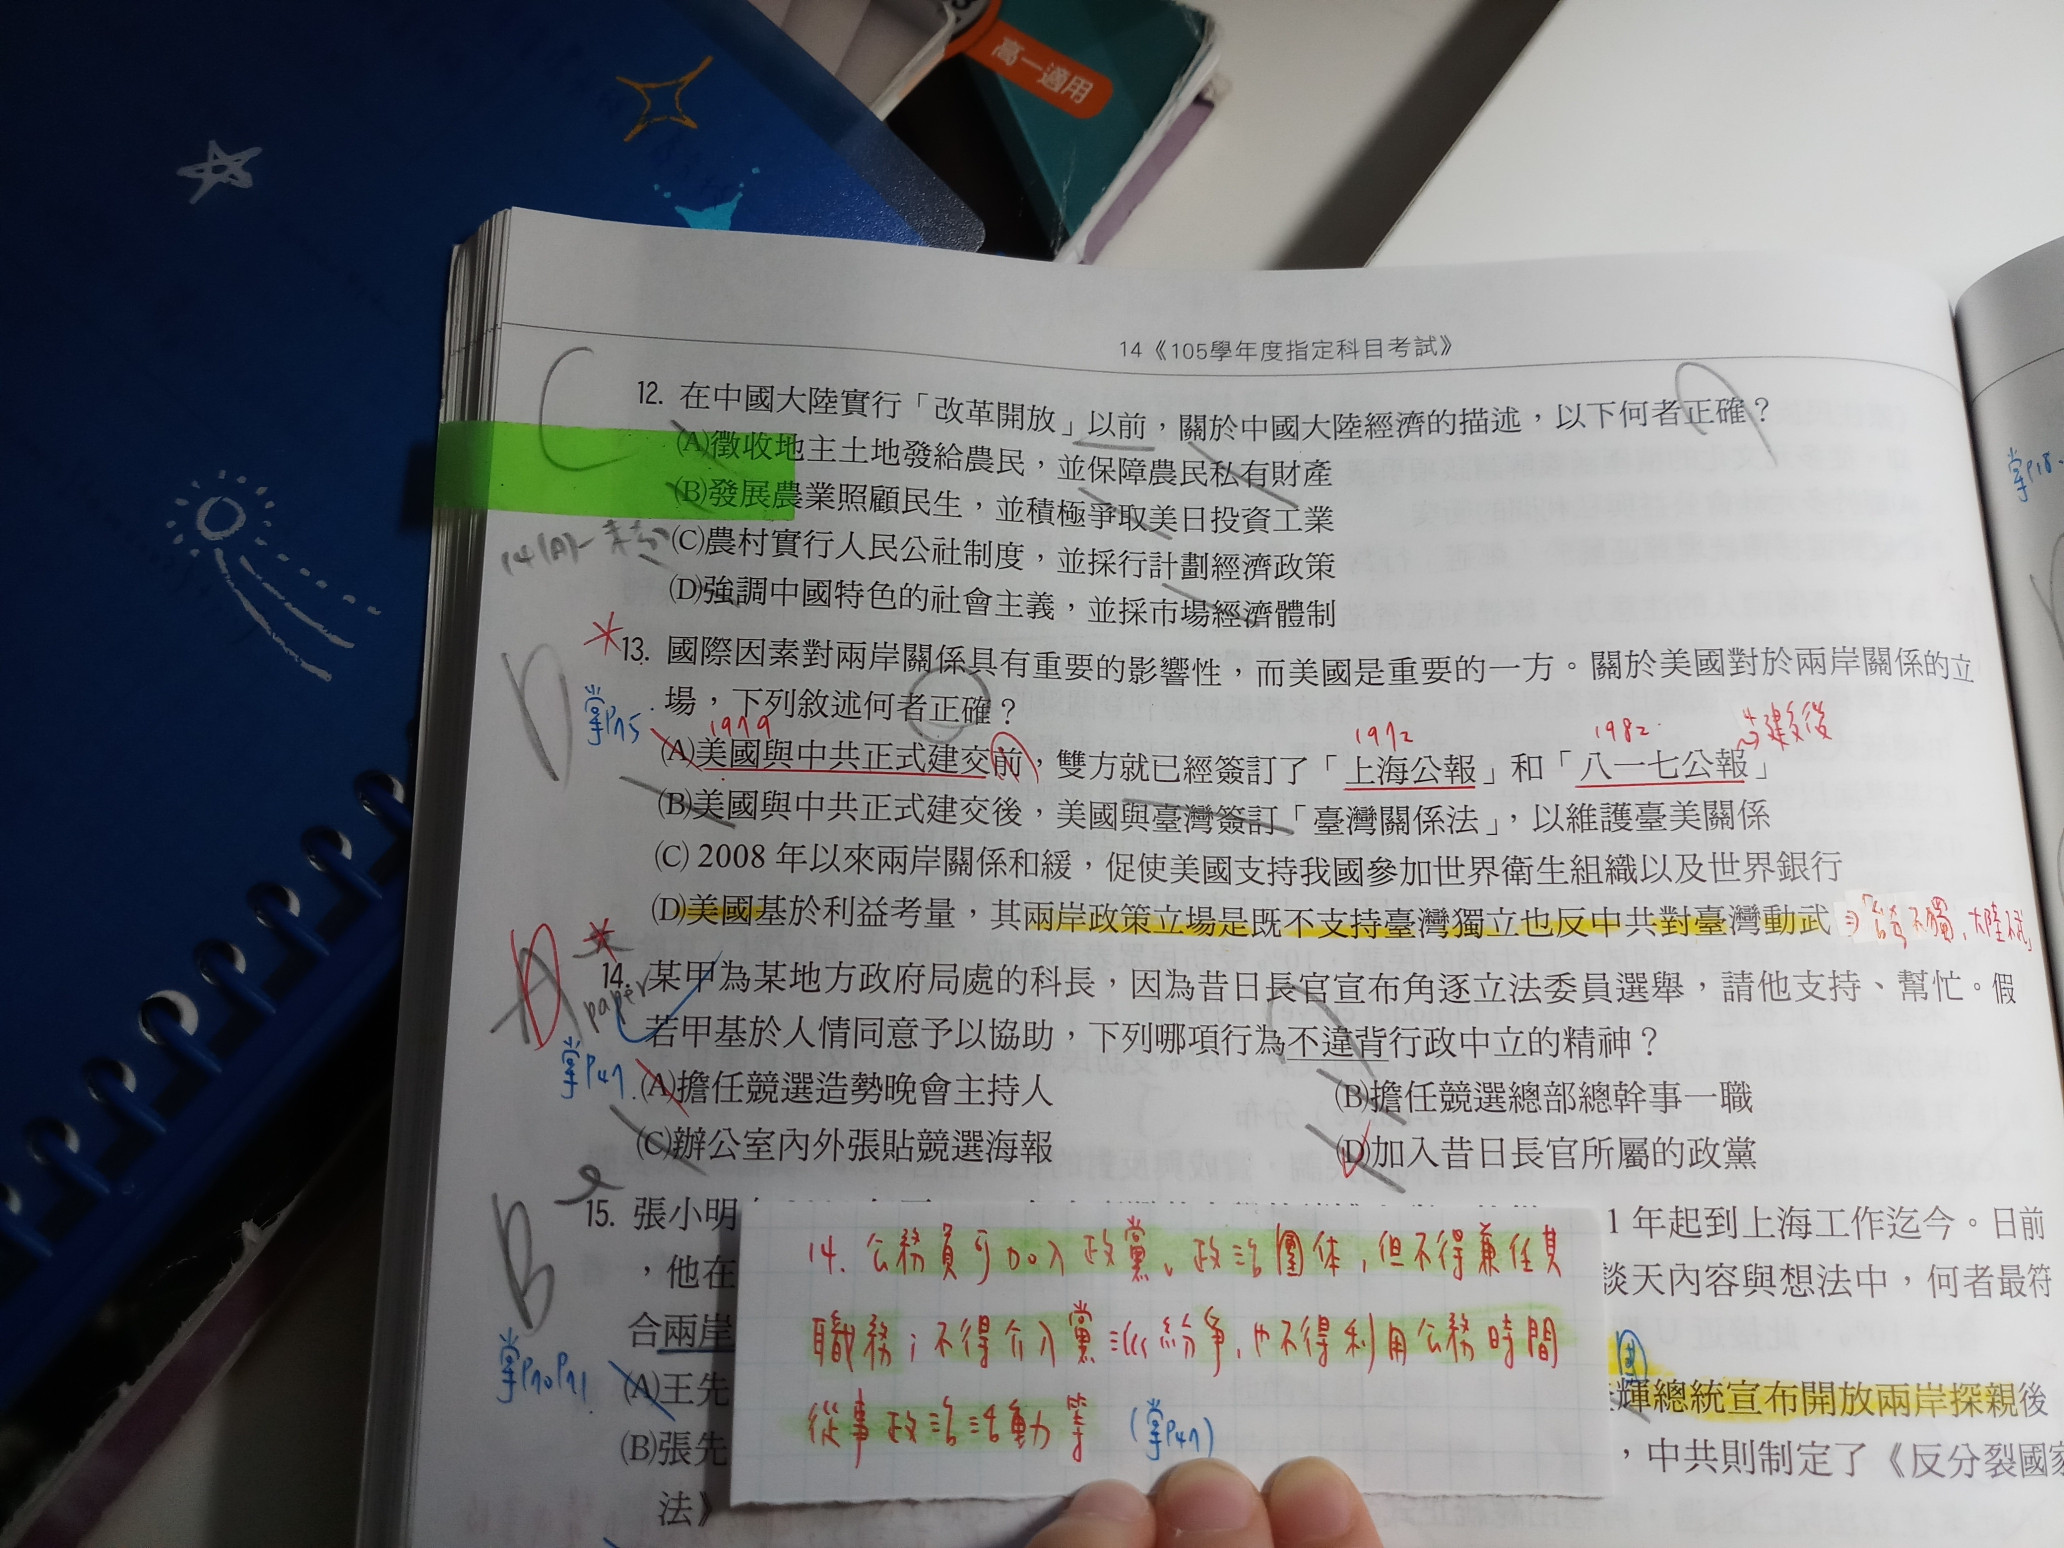 高一適用
14《105學年度指定科目考試》
C
12. 在中國大陸實行「改革開放」以前，關於中國大陸經濟的描述，以下何者正確？
(A)徵收地主土地發給農民，並保障農民私有財產
(B)發展農業照顧民生，並積極爭取美日投資工業
14(A)-
(C)農村實行人民公社制度，並採行計劃經濟政策
(D)強調中國特色的社會主義，並採市場經濟體制
D
13. 國際因素對兩岸關係具有重要的影響性，而美國是重要的一方。關於美國對於兩岸關係的立
場，下列敘述何者正確？
掌P75
1979
1972
1982
建交後
(A)美國與中共正式建交前，雙方就已經簽訂了「上海公報」和「八一七公報」
(B)美國與中共正式建交後，美國與臺灣簽訂「臺灣關係法」，以維護臺美關係
(C) 2008 年以來兩岸關係和緩，促使美國支持我國參加世界衛生組織以及世界銀行
(D)美國基於利益考量，其兩岸政策立場是既不支持臺灣獨立也反中共對臺灣動武
A
D
paper
14. 某甲為某地方政府局處的科長，因為昔日長官宣布角逐立法委員選舉，請他支持、幫忙。假
若甲基於人情同意予以協助，下列哪項行為不違背行政中立的精神？
掌P47
(A)擔任競選造勢晚會主持人
(B)擔任競選總部總幹事一職
(C)辦公室內外張貼競選海報
(D)加入昔日長官所屬的政黨
B
15. 張小明
1 年起到上海工作迄今。日前
，他在
談天內容與想法中，何者最符
合兩岸
掌P70P71
(A)王先
輝總統宣布開放兩岸探親後
(B)張先
，中共則制定了《反分裂國家
法》
14. 公務員可加入政黨、政治團体，但不得兼任其
職務；不得介入黨派紛爭，也不得利用公務時間
從事政治活動等 (掌P47)